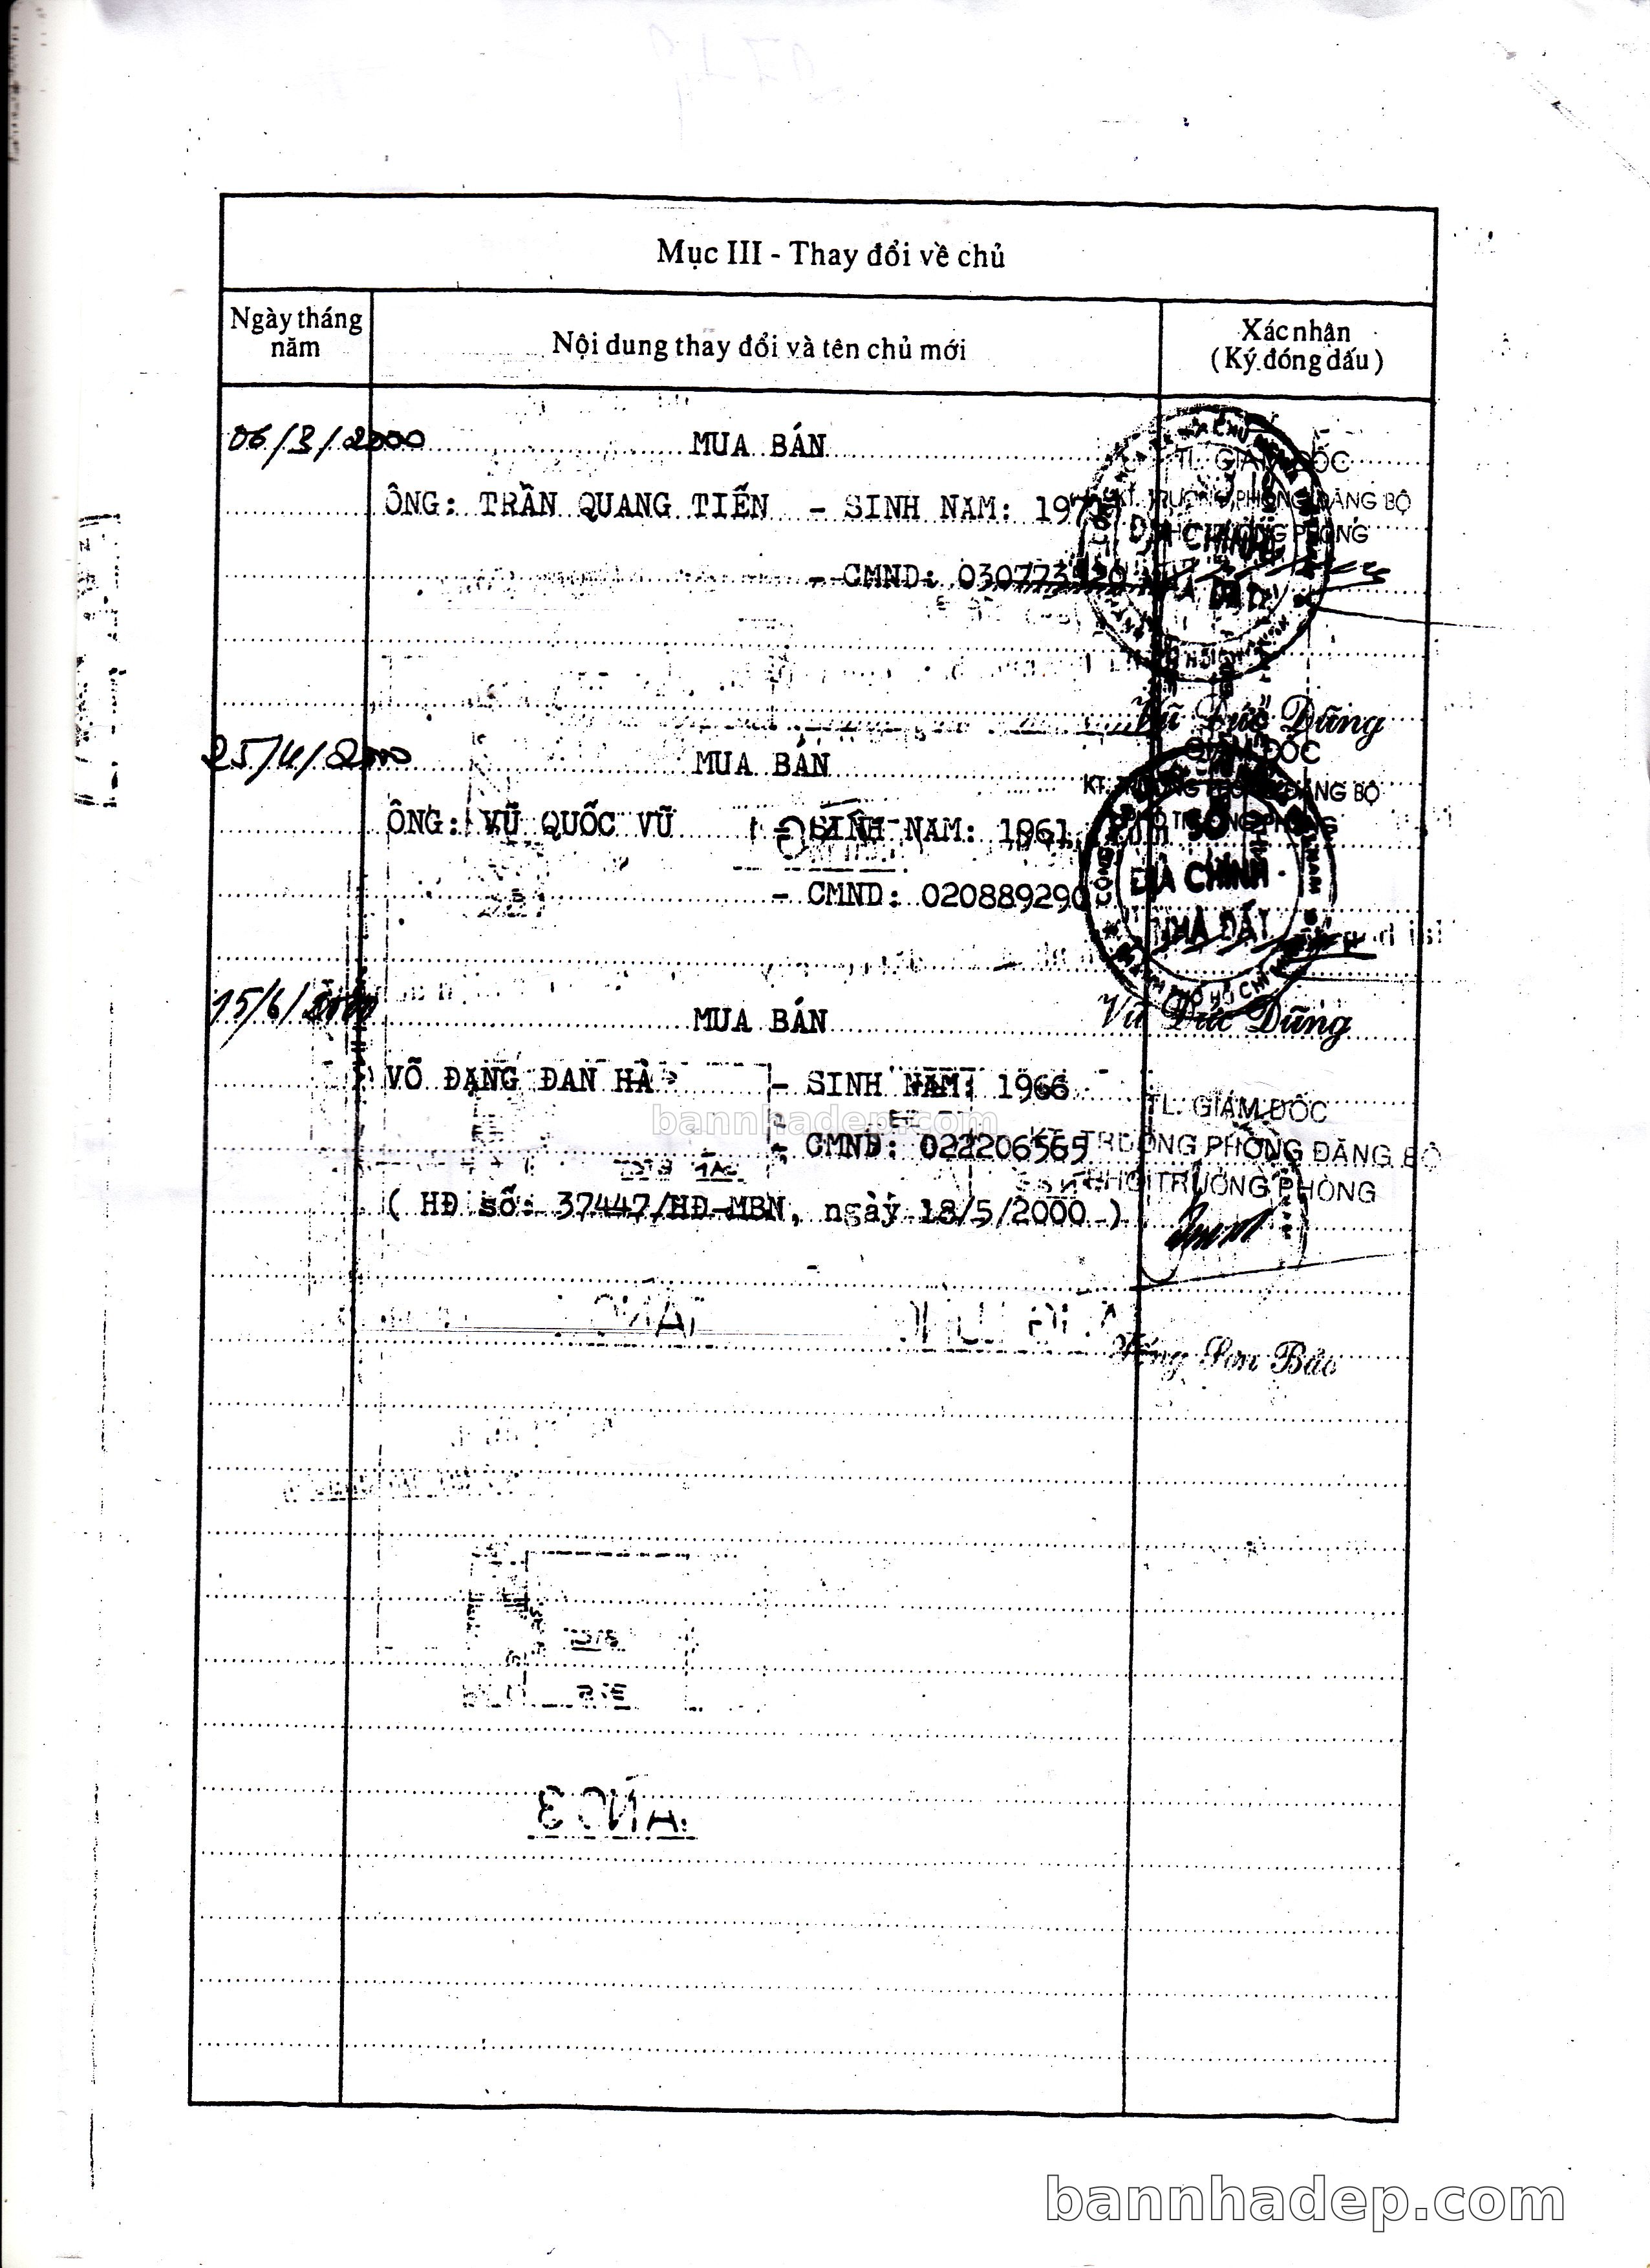 Mục III - Thay đổi về chủ
Ngày tháng năm
Nội dung thay đổi và tên chủ mới
Xác nhận
(Ký đóng dấu)
06/3/2000
MUA BÁN
TL. GIÁM ĐỐC
ÔNG: TRẦN QUANG TIẾN - SINH NAM:
KT. TRƯỞNG PHÒNG ĐĂNG BỘ
PHÓ TRƯỞNG PHÒNG
ĐỊA CHÍNH
NHÀ ĐẤT
- CMND:
Vũ Đức Dũng
25/4/2000
MUA BÁN
GIÁM ĐỐC
KT. TRƯỞNG PHÒNG ĐĂNG BỘ
PHÓ TRƯỞNG PHÒNG
ÔNG: VŨ QUỐC VŨ - SINH NAM: 1961
SỞ
ĐỊA CHÍNH
NHÀ ĐẤT
- CMND: 020889290
Vũ Đức Dũng
15/6/2000
MUA BÁN
VÕ ĐẠNG ĐAN HÀ - SINH NAM: 1966
bannhadep.com
TL. GIÁM ĐỐC
- CMND: 022206565
KT. TRƯỞNG PHÒNG ĐĂNG BỘ
PHÓ TRƯỞNG PHÒNG
( HĐ số: 37447/HĐ-MBN, ngày 18/5/2000 )
Sơn Bảo
bannhadep.com